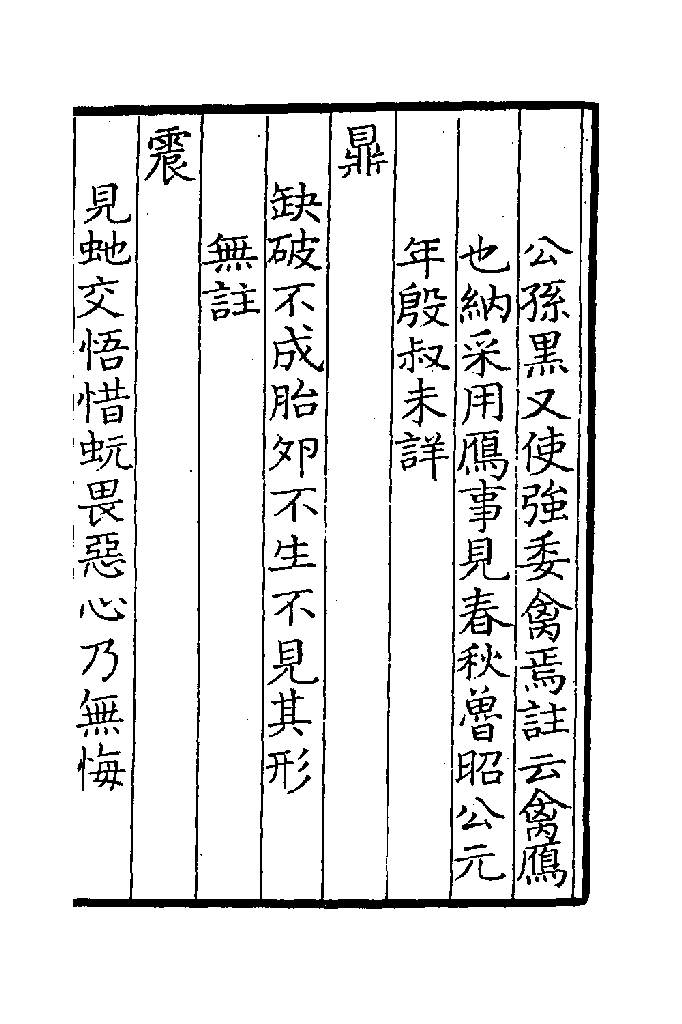 公孫黒又使強委禽焉註云禽鴈
也納采用鴈事見春秋魯昭公元
年殷叔未詳
鼎
缺破不成胎夘不生不見其形
無註
震
見虵交悟惜蚖畏惡心乃無悔